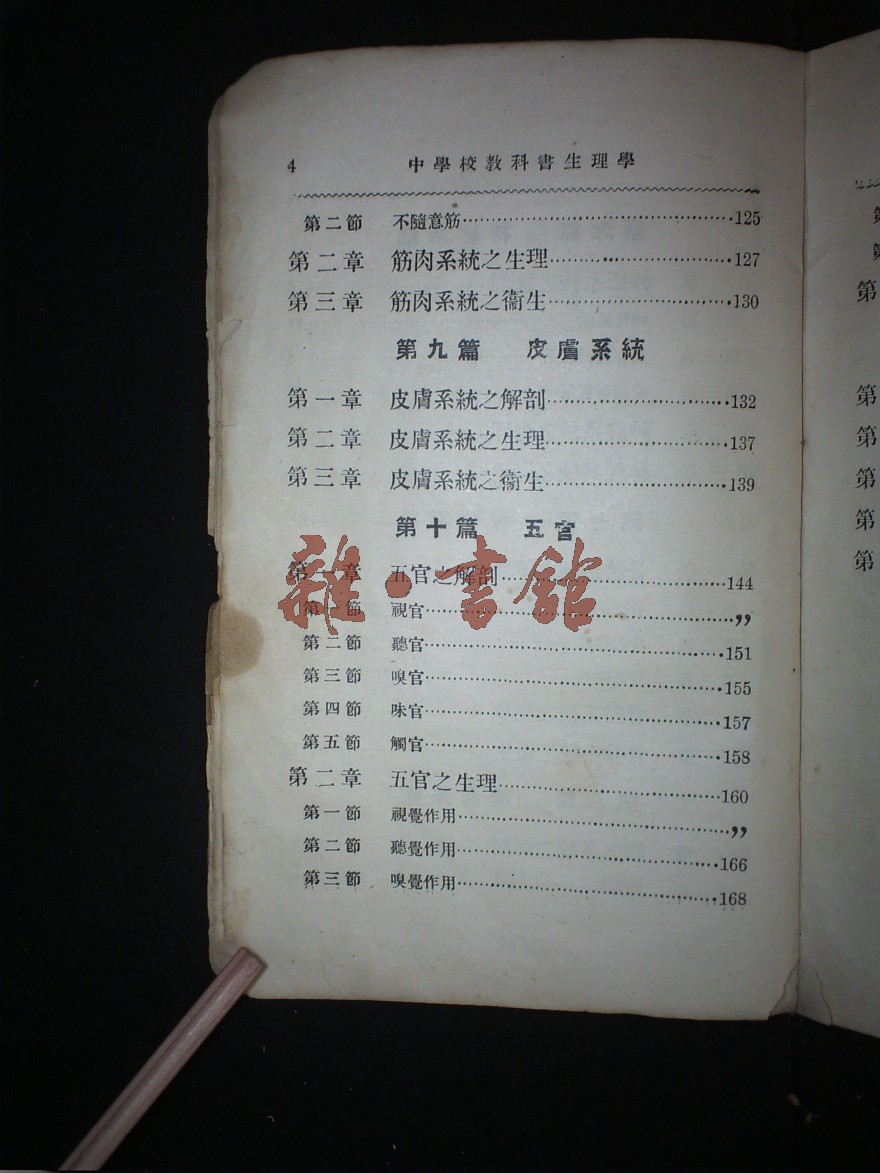 4 中學校教科書生理學
第二節 不隨意筋……125
第二章 筋肉系統之生理……127
第三章 筋肉系統之衞生……130
第九篇 皮膚系統
第一章 皮膚系統之解剖……132
第二章 皮膚系統之生理……137
第三章 皮膚系統之衞生……139
第十篇 五官
第一章 五官之解剖……144
雜·書館
第一節 視官……”
第二節 聽官……151
第三節 嗅官……155
第四節 味官……157
第五節 觸官……158
第二章 五官之生理……160
第一節 視覺作用……”
第二節 聽覺作用……166
第三節 嗅覺作用……168
第
第
第
第
第
第